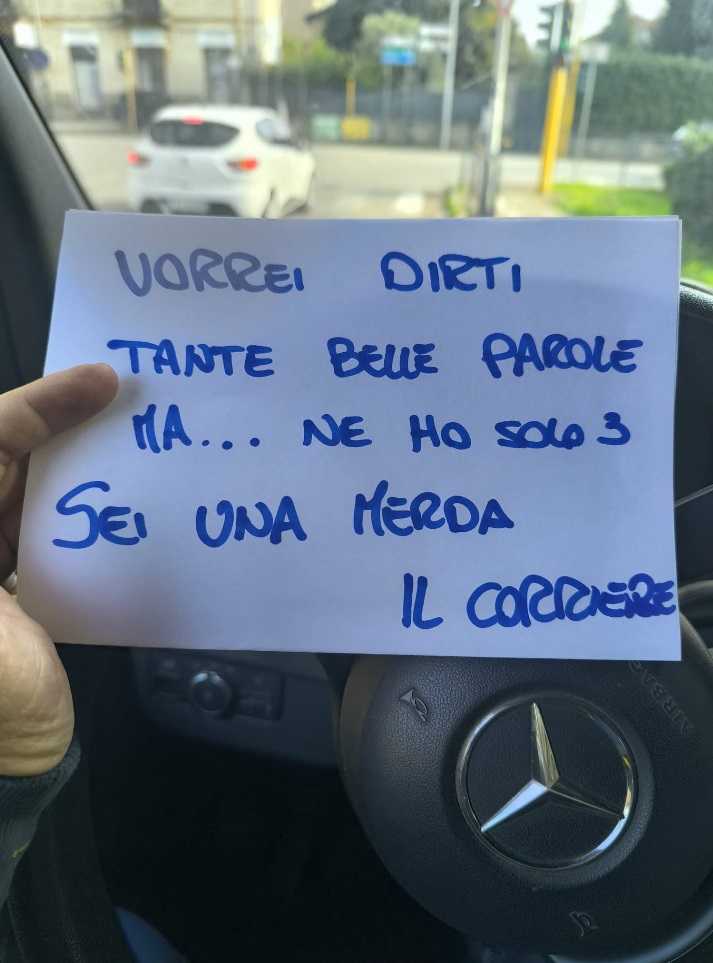 VORREI DIRTI
TANTE BELLE PAROLE
MA... NE HO SOLO 3
SEI UNA MERDA
IL CORRIERE
AIRBAG